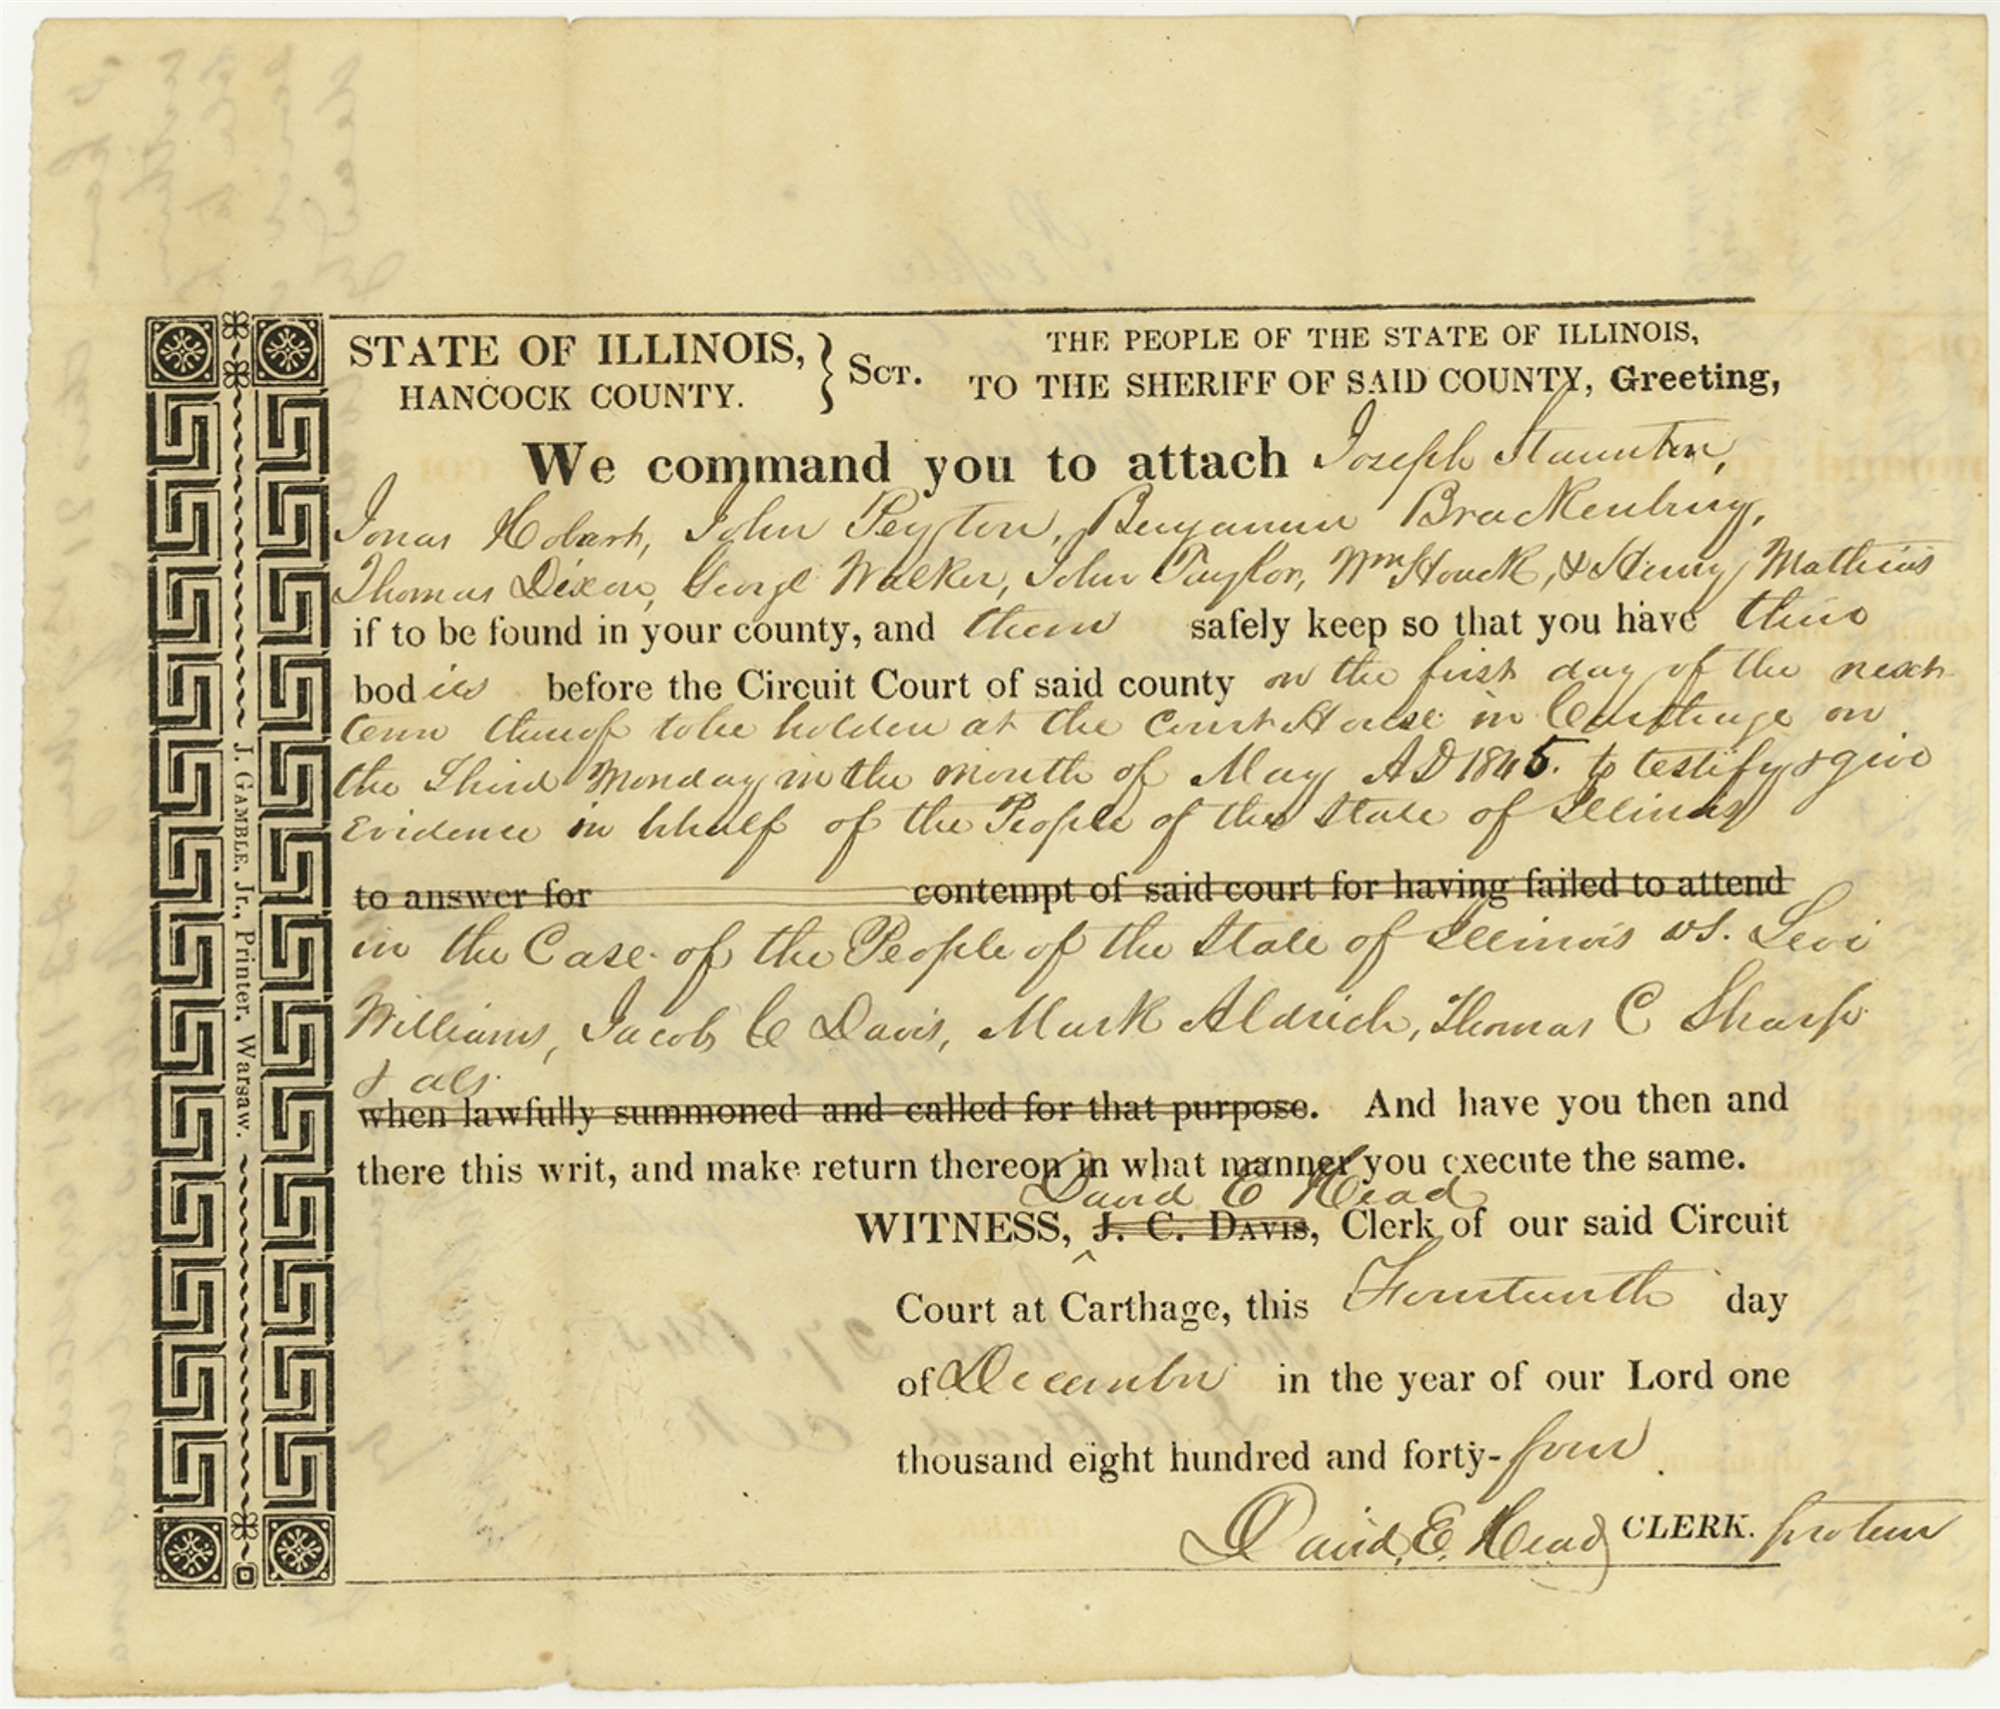 STATE OF ILLINOIS,
HANCOCK COUNTY.
} SCT.
THE PEOPLE OF THE STATE OF ILLINOIS,
TO THE SHERIFF OF SAID COUNTY, Greeting,
We command you to attach Joseph Staunton,
Jonas Hobart, John Peyton, Benjamin Brackenbury,
Thomas Dixon, George Walker, John Taylor, Wm Houck, & Henry Mathias
if to be found in your county, and them safely keep so that you have their
bodies before the Circuit Court of said county on the first day of the next
term thereof to be holden at the Court House in Carthage on
the Third Monday in the month of May AD 1845. to testify & give
Evidence in behalf of the People of the State of Illinois
to answer for contempt of said court for having failed to attend
in the Case of the People of the State of Illinois vs. Levi
Williams, Jacob C Davis, Mark Aldrich, Thomas C Sharp
& als.
when lawfully summoned and called for that purpose. And have you then and
there this writ, and make return thereon in what manner you execute the same.
David E Head
WITNESS, J. C. DAVIS, Clerk of our said Circuit
^
Court at Carthage, this Fourteenth day
of December in the year of our Lord one
thousand eight hundred and forty-four.
David E. Head CLERK. protem
J. GAMBLE, Jr., Printer, Warsaw.